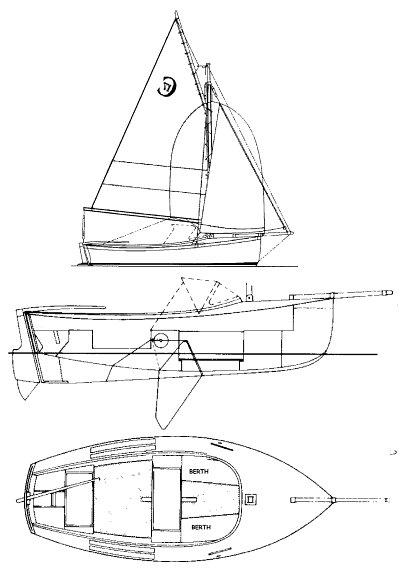 17
BERTH
BERTH